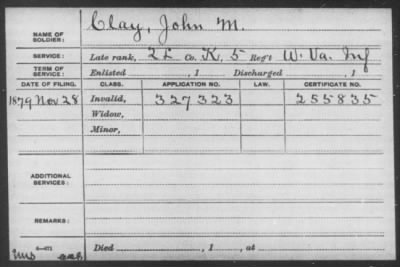 NAME OF SOLDIER: Clay, John M.
SERVICE: Late rank, 2 L Co. K, 5 Reg't W. Va. Inf
TERM OF SERVICE: Enlisted , 1 Discharged , 1
DATE OF FILING. CLASS. APPLICATION NO. LAW. CERTIFICATE NO.
1879 Nov 28 Invalid, 327323 255835
Widow,
Minor,
ADDITIONAL SERVICES:
REMARKS:
6—871
Died , 1 , at